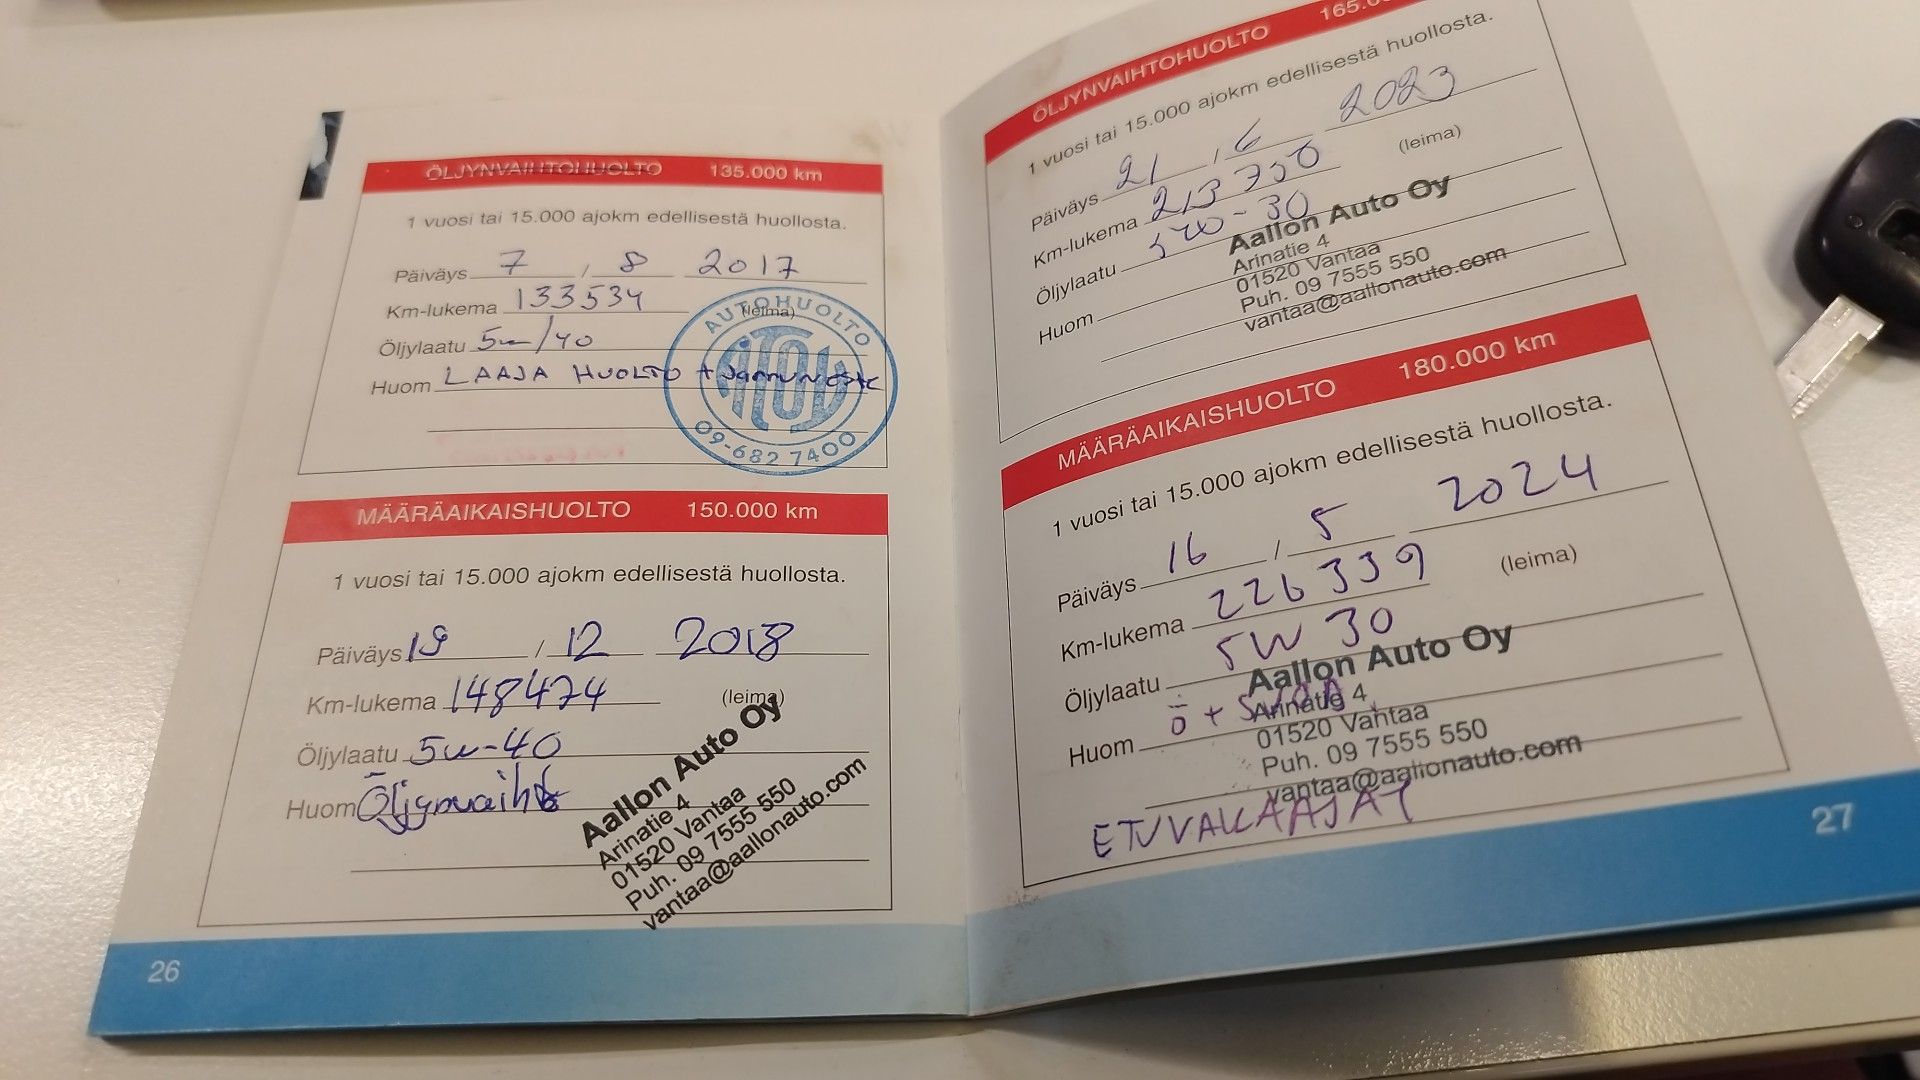 ÖLJYNVAIHTOHUOLTO 135.000 km
1 vuosi tai 15.000 ajokm edellisestä huollosta.
Päiväys 7 / 8 2017
Km-lukema 133534
(leima)
Öljylaatu 5w/40
Huom LAAJA HUOLTO + Jarruneste
AUTOHUOLTO
09-682 7400
MÄÄRÄAIKAISHUOLTO 150.000 km
1 vuosi tai 15.000 ajokm edellisestä huollosta.
Päiväys 19 / 12 2018
Km-lukema 148474 (leima)
Öljylaatu 5w-40
Huom Öljynvaihto
Aallon Auto Oy
Arinatie 4
01520 Vantaa
Puh. 09 7555 550
vantaa@aallonauto.com
26
ÖLJYNVAIHTOHUOLTO
1 vuosi tai 15.000 ajokm edellisestä huollosta.
Päiväys 21 / 6 2023
Km-lukema 213730 (leima)
Öljylaatu 5W-30
Huom
Aallon Auto Oy
Arinatie 4
01520 Vantaa
Puh. 09 7555 550
vantaa@aallonauto.com
MÄÄRÄAIKAISHUOLTO 180.000 km
1 vuosi tai 15.000 ajokm edellisestä huollosta.
Päiväys 16 / 5 2024
Km-lukema 226339 (leima)
Öljylaatu 5W 30
Huom Ö +
Aallon Auto Oy
Arinatie 4
01520 Vantaa
Puh. 09 7555 550
vantaa@aallonauto.com
27